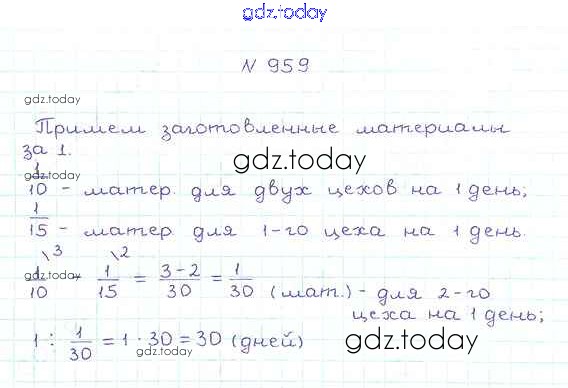 gdz.today
N 959
gdz.today
Примем заготовленные материалы
за 1.
gdz.today
1/10 - матер. для двух цехов на 1 день;
gdz.today
1/15 - матер для 1-го цеха на 1 день.
1/10 \3 - 1/15 \2 = 3-2/30 = 1/30 (мат.) - для 2-го
gdz.today
цеха на 1 день;
1 : 1/30 = 1 · 30 = 30 (дней)
gdz.today
gdz.today